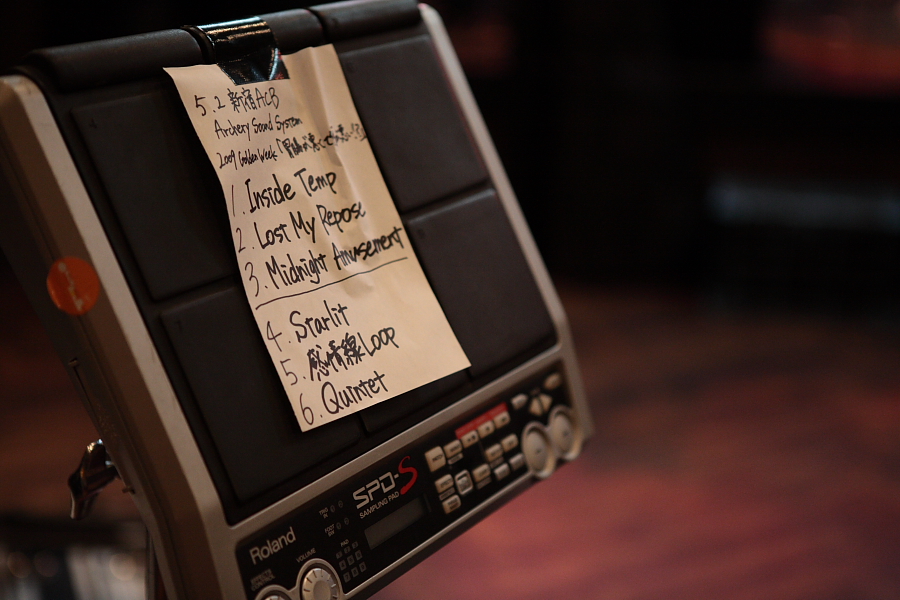 5.2 新宿ACB
Archery Sound System
2009 Golden Week
1. Inside Temp
2. Lost My Repose
3. Midnight Amusement
4. Starlit
5. 感情線Loop
6. Quintet
SPD-S
SAMPLING PAD
Roland
VOLUME
PAD